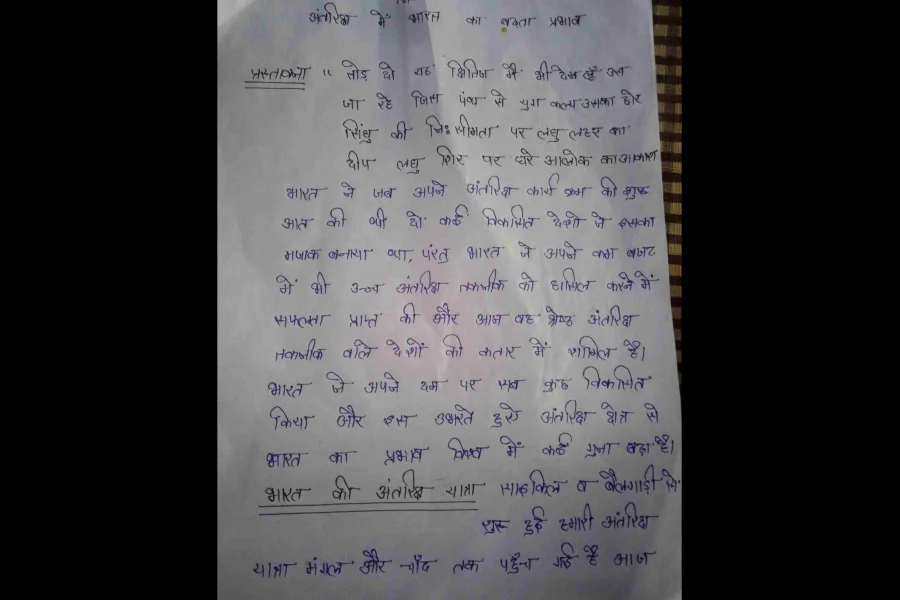 अंतरिक्ष में भारत का बढता प्रभाव
प्रस्तावना " तोड़ दो यह क्षितिज मैं भी देख लूँ उस
जा रहे जिस पंथ से युग कल्प उसका छोर
सिंधु की निःसीमता पर लघु लहर का
दीप लघु शिर पर धरे आलोक का आकाश
भारत ने जब अपने अंतरिक्ष कार्य क्रम की शुरू
आत की थी तो कई विकसित देशो ने इसका
मजाक बनाया था, परंतु भारत ने अपने कम बजट
में भी उच्च अंतरिक्ष तकनीक को हासिल करने में
सफलता प्राप्त की और आज वह श्रेष्ठ अंतरिक्ष
तकनीक वाले देशों की कतार में शामिल है।
भारत ने अपने दम पर सब कुछ विकसित
किया और इस उभरते हुए अंतरिक्ष क्षेत्र से
भारत का प्रभाव विश्व में कई गुना बढ़ा है।
भारत की अंतरिक्ष यात्रा साइकिल व बैलगाड़ी से
शुरू हुई हमारी अंतरिक्ष
यात्रा मंगल और चाँद तक पहुँच गई है आज